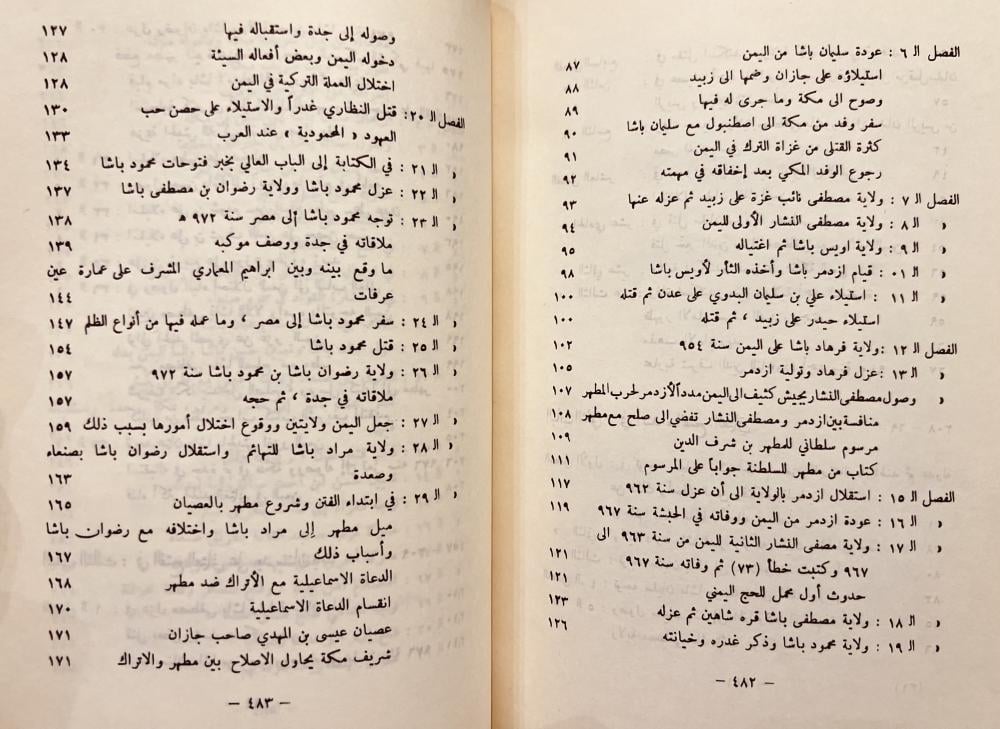 الفصل الـ ٦ : عودة سليمان باشا من اليمن ٨٧
استيلاؤه على جازان وضمها الى زبيد ٨٨
وصوح الى مكة وما جرى له فيها ٨٩
سفر وفد من مكة الى اصطنبول مع سليمان باشا ٩٠
كثرة القتلى من غزاة الترك في اليمن ٩١
رجوع الوفد المكي بعد إخفاقه في مهمته ٩٢
الفصل الـ ٧ : ولاية مصطفى نائب غزة على زبيد ثم عزله عنها ٩٣
« الـ ٨ : ولاية مصطفى النشار الأولى لليمن ٩٤
« الـ ٩ : ولاية اويس باشا ثم اغتياله ٩٥
« الـ ٠١ : قيام ازدمر باشا وأخذه الثأر لأويس باشا ٩٨
« الـ ١١ : استيلاء علي بن سليمان البدوي على عدن ثم قتله ١٠٠
استيلاء حيدر على زبيد ، ثم قتله ١٠٠
الفصل الـ ١٢ : ولاية فرهاد باشا على اليمن سنة ٩٥٤ ١٠٢
« الـ ١٣ : عزل فرهاد وتولية ازدمر ١٠٥
« وصول مصطفى النشار بجيش كثيف الى اليمن مدداً لأزدمر لحرب المطهر ١٠٧
منافسة بين ازدمر ومصطفى النشار تفضي الى صلح مع مطهر ١٠٨
مرسوم سلطاني للمطهر بن شرف الدين ١٠٩
كتاب من مطهر للسلطنة جواباً على المرسوم ١١١
الفصل الـ ١٥ : استقلال ازدمر بالولاية الى أن عزل سنة ٩٦٢ ١١٧
« الـ ١٦ : عودة ازدمر من اليمن ووفاته في الحبشة سنة ٩٦٧ ١١٩
« الـ ١٧ : ولاية مصفى النشار الثانية لليمن من سنة ٩٦٣ الى
٩٦٧ وكتبت خطأ (٧٣) ثم وفاته سنة ٩٦٧ ١٢١
حدوث أول محمل للحج اليمني ١٢١
« الـ ١٨ : ولاية مصطفى باشا قره شاهين ثم عزله ١٢٣
« الـ ١٩ : ولاية محمود باشا وذكر غدره وخيانته ١٢٦
– ٤٨٢ –
وصوله إلى جدة واستقباله فيها ١٢٧
دخوله اليمن وبعض أفعاله السيئة ١٢٨
اختلال العملة التركية في اليمن ١٢٨
الفصل الـ ٢٠: قتل النظاري غدراً والاستيلاء على حصن حب ١٣٠
العهود « المحمودية » عند العرب ١٣٣
« الـ ٢١ : في الكتابة إلى الباب العالي بخبر فتوحات محمود باشا ١٣٤
« الـ ٢٢ : عزل محمود باشا وولاية رضوان بن مصطفى باشا ١٣٧
« الـ ٢٣ : توجه محمود باشا إلى مصر سنة ٩٧٢ هـ ١٣٨
ملاقاته في جدة ووصف موكبه ١٣٩
ما وقع بينه وبين ابراهيم المعاري المشرف على عمارة عين
عرفات ١٤٤
« الـ ٢٤ : سفر محمود باشا إلى مصر ، وما عمله فيها من أنواع الظلم ١٤٧
« الـ ٢٥ : قتل محمود باشا ١٥٤
« الـ ٢٦ : ولاية رضوان باشا بن محمود باشا سنة ٩٧٢ ١٥٧
ملاقاته في جدة ، ثم حجه ١٥٧
« الـ ٢٧ : جعل اليمن ولايتين ووقوع اختلال أمورها بسبب ذلك ١٥٩
« الـ ٢٨ : ولاية مراد باشا للتهائم واستقلال رضوان باشا بصنعاء
وصعدة ١٦٣
« الـ ٢٩ : في ابتداء الفتن وشروع مطهر بالعصيان ١٦٥
ميل مطهر إلى مراد باشا واختلافه مع رضوان باشا
وأسباب ذلك ١٦٧
الدعاة الاسماعيلية مع الأتراك ضد مطهر ١٦٨
انقسام الدعاة الاسماعيلية ١٧٠
عصيان عيسى بن المهدي صاحب جازان ١٧١
شريف مكة يحاول الاصلاح بين مطهر والاتراك ١٧١
– ٤٨٣ –